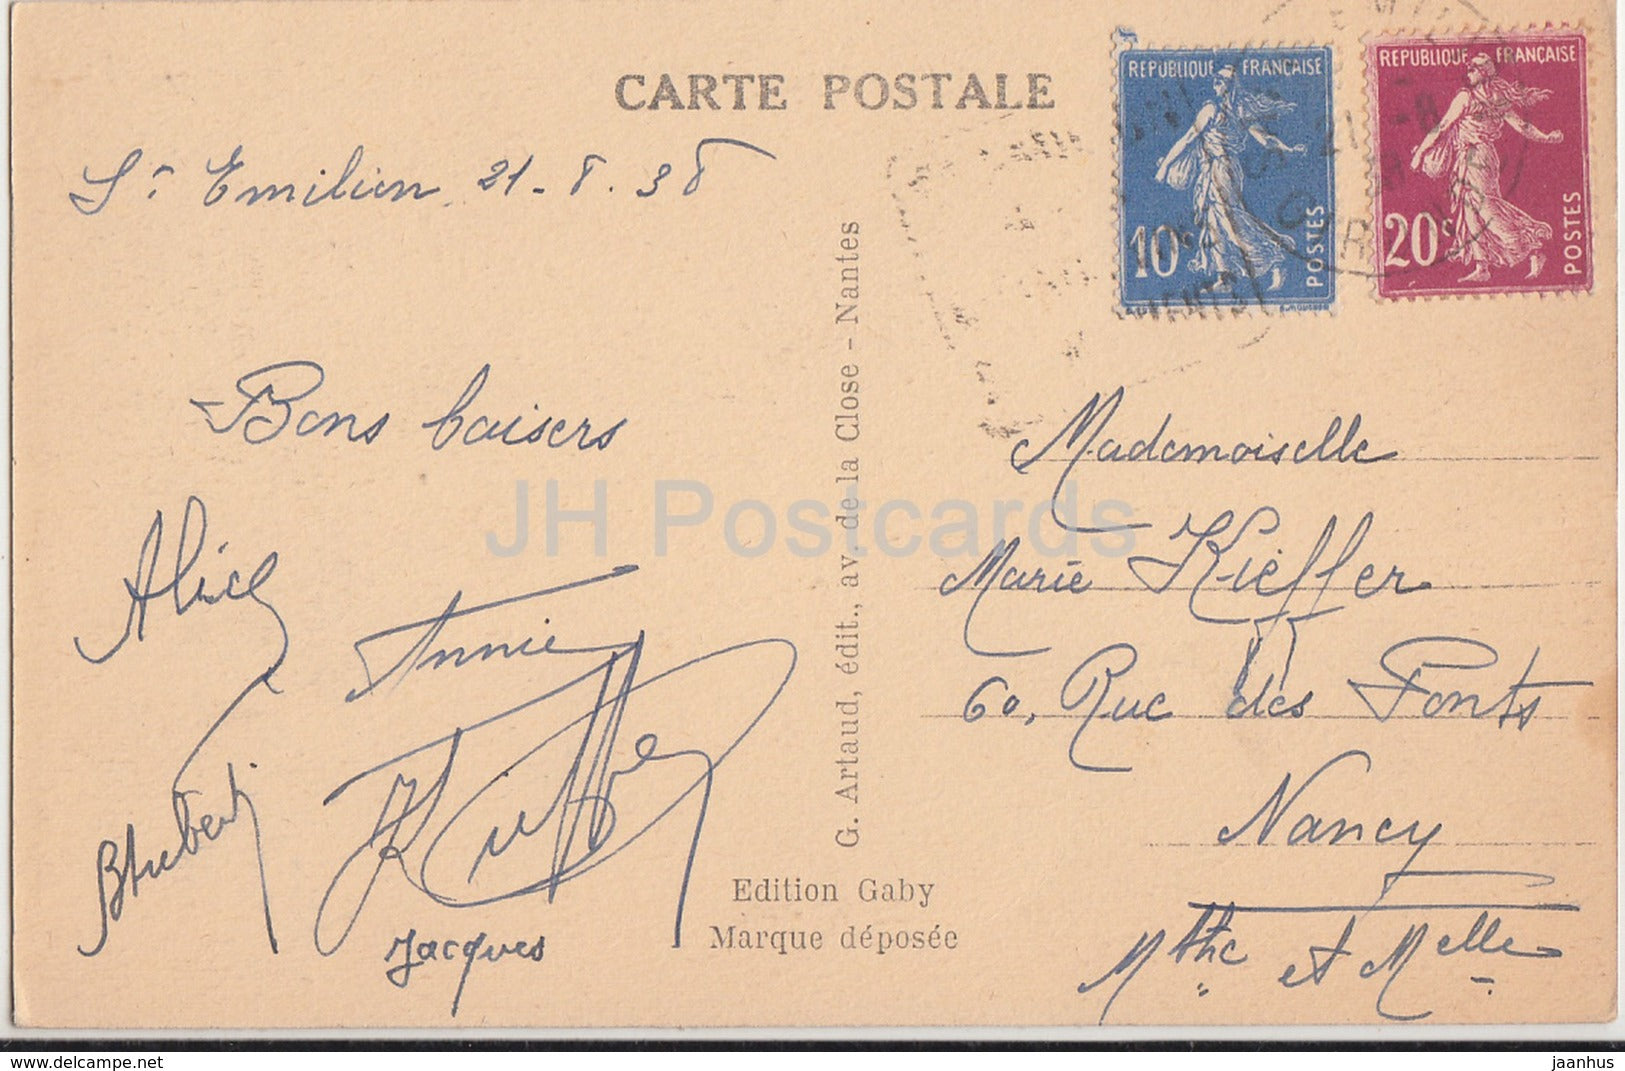 CARTE POSTALE
St Emilion 21-8.38
Bons baisers
Alice
Annie
Hubert
Kieffer
Jacques
G. Artaud, édit., av. de la Close - Nantes
Edition Gaby
Marque déposée
REPUBLIQUE FRANÇAISE
10c
POSTES
REPUBLIQUE FRANÇAISE
20c
POSTES
21 -8
Mademoiselle
Marie Kieffer
60, Rue des Ponts
Nancy
Mthe et Melle
JH Postcards
www.delcampe.net
jaanhus